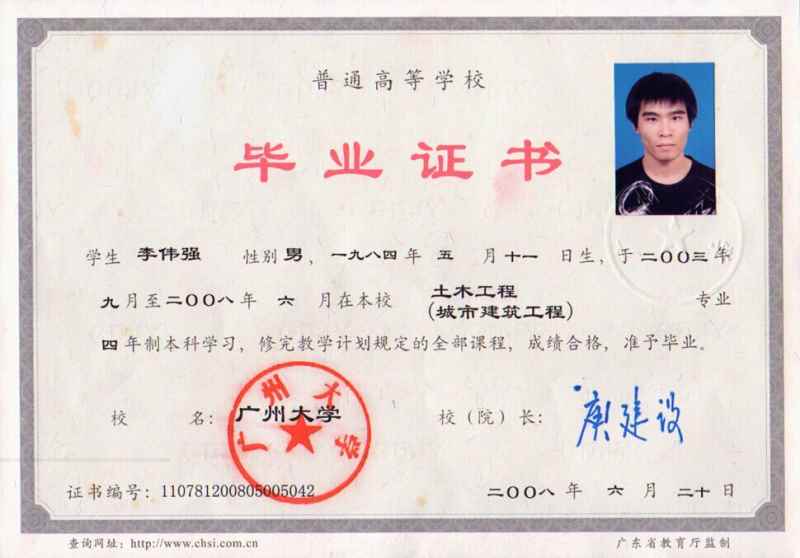 普通高等学校
毕业证书
学生 李伟强 性别 男，一九八四年 五 月 十一 日生，于二〇〇三年
九月至二〇〇八年 六 月在本校 土木工程 专业
(城市建筑工程)
四年制本科学习，修完教学计划规定的全部课程，成绩合格，准予毕业。
校 名：广州大学 校（院）长：庾建设
广州大学
证书编号：110781200805005042 二〇〇八年 六 月 二十日
查询网址：http://www.chsi.com.cn 广东省教育厅监制